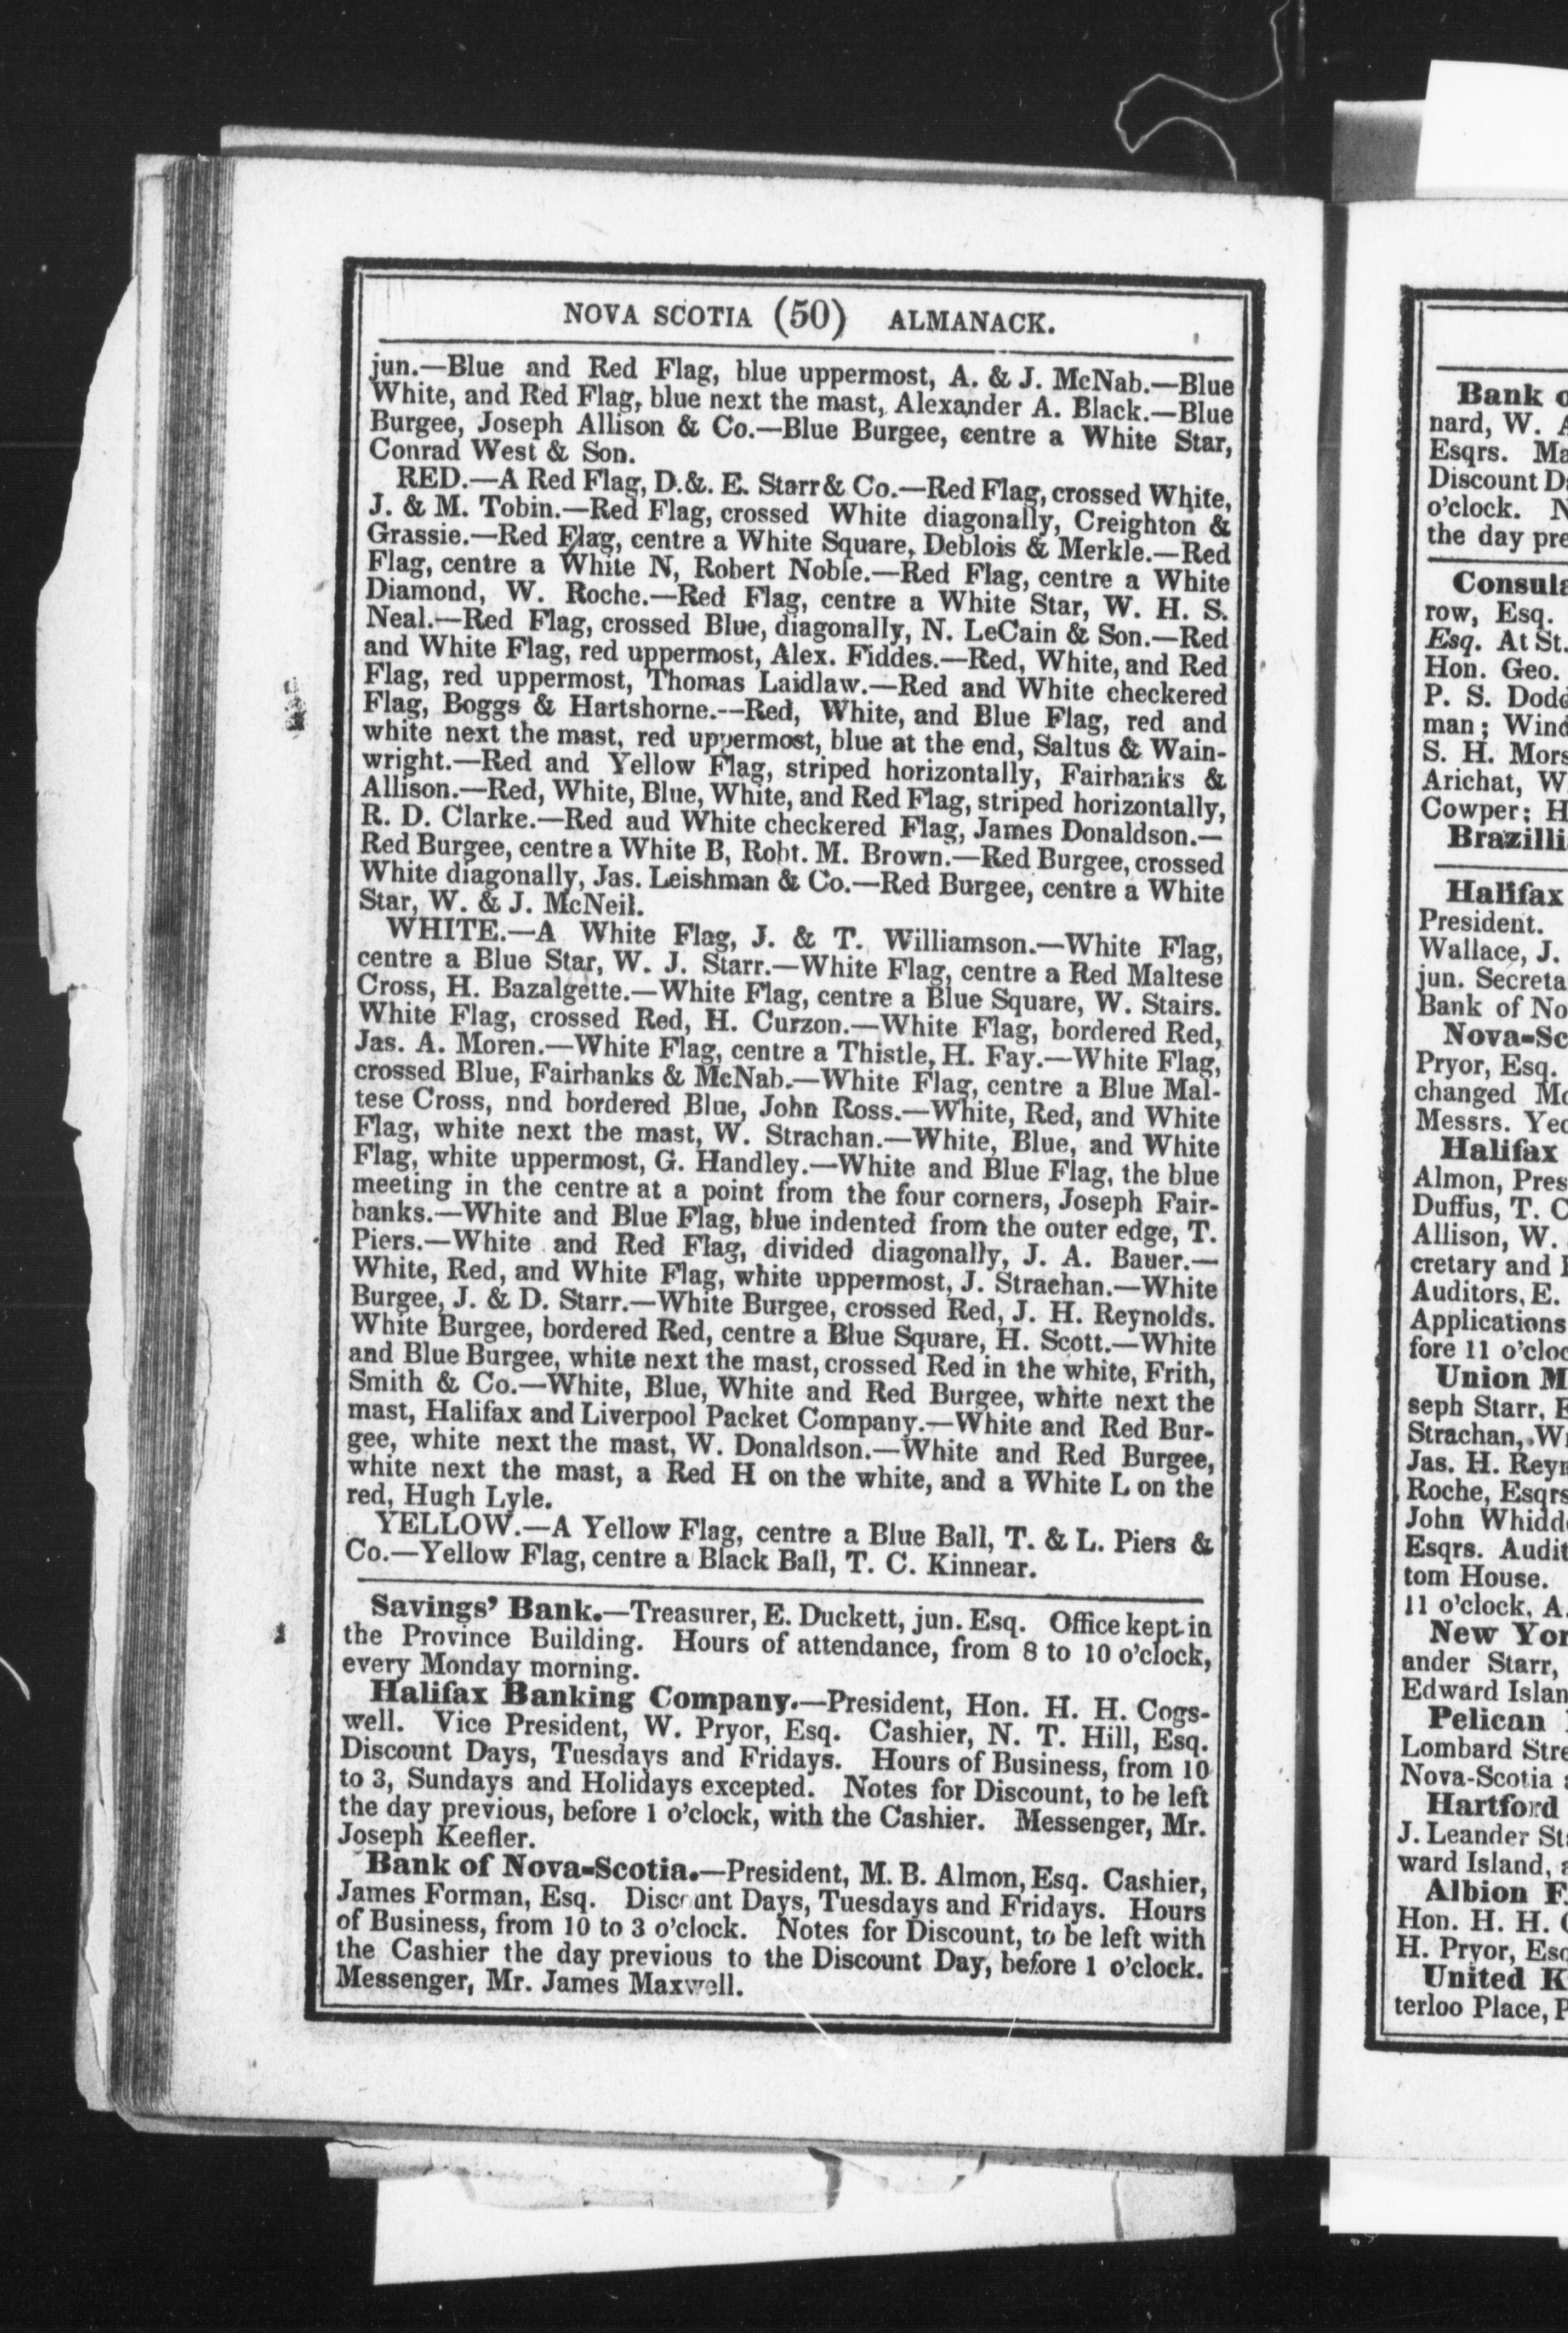 NOVA SCOTIA (50) ALMANACK.
jun.—Blue and Red Flag, blue uppermost, A. & J. McNab.—Blue
White, and Red Flag, blue next the mast, Alexander A. Black.—Blue
Burgee, Joseph Allison & Co.—Blue Burgee, centre a White Star,
Conrad West & Son.
RED.—A Red Flag, D.&. E. Starr & Co.—Red Flag, crossed White,
J. & M. Tobin.—Red Flag, crossed White diagonally, Creighton &
Grassie.—Red Flag, centre a White Square, Deblois & Merkle.—Red
Flag, centre a White N, Robert Noble.—Red Flag, centre a White
Diamond, W. Roche.—Red Flag, centre a White Star, W. H. S.
Neal.—Red Flag, crossed Blue, diagonally, N. LeCain & Son.—Red
and White Flag, red uppermost, Alex. Fiddes.—Red, White, and Red
Flag, red uppermost, Thomas Laidlaw.—Red and White checkered
Flag, Boggs & Hartshorne.--Red, White, and Blue Flag, red and
white next the mast, red uppermost, blue at the end, Saltus & Wain-
wright.—Red and Yellow Flag, striped horizontally, Fairbanks &
Allison.—Red, White, Blue, White, and Red Flag, striped horizontally,
R. D. Clarke.—Red aud White checkered Flag, James Donaldson.—
Red Burgee, centre a White B, Robt. M. Brown.—Red Burgee, crossed
White diagonally, Jas. Leishman & Co.—Red Burgee, centre a White
Star, W. & J. McNeil.
WHITE.—A White Flag, J. & T. Williamson.—White Flag,
centre a Blue Star, W. J. Starr.—White Flag, centre a Red Maltese
Cross, H. Bazalgette.—White Flag, centre a Blue Square, W. Stairs.
White Flag, crossed Red, H. Curzon.—White Flag, bordered Red,
Jas. A. Moren.—White Flag, centre a Thistle, H. Fay.—White Flag,
crossed Blue, Fairbanks & McNab.—White Flag, centre a Blue Mal-
tese Cross, nnd bordered Blue, John Ross.—White, Red, and White
Flag, white next the mast, W. Strachan.—White, Blue, and White
Flag, white uppermost, G. Handley.—White and Blue Flag, the blue
meeting in the centre at a point from the four corners, Joseph Fair-
banks.—White and Blue Flag, blue indented from the outer edge, T.
Piers.—White and Red Flag, divided diagonally, J. A. Bauer.—
White, Red, and White Flag, white uppermost, J. Strachan.—White
Burgee, J. & D. Starr.—White Burgee, crossed Red, J. H. Reynolds.
White Burgee, bordered Red, centre a Blue Square, H. Scott.—White
and Blue Burgee, white next the mast, crossed Red in the white, Frith,
Smith & Co.—White, Blue, White and Red Burgee, white next the
mast, Halifax and Liverpool Packet Company.—White and Red Bur-
gee, white next the mast, W. Donaldson.—White and Red Burgee,
white next the mast, a Red H on the white, and a White L on the
red, Hugh Lyle.
YELLOW.—A Yellow Flag, centre a Blue Ball, T. & L. Piers &
Co.—Yellow Flag, centre a Black Ball, T. C. Kinnear.
Savings' Bank.—Treasurer, E. Duckett, jun. Esq. Office kept in
the Province Building. Hours of attendance, from 8 to 10 o'clock,
every Monday morning.
Halifax Banking Company.—President, Hon. H. H. Cogs-
well. Vice President, W. Pryor, Esq. Cashier, N. T. Hill, Esq.
Discount Days, Tuesdays and Fridays. Hours of Business, from 10
to 3, Sundays and Holidays excepted. Notes for Discount, to be left
the day previous, before 1 o'clock, with the Cashier. Messenger, Mr.
Joseph Keefler.
Bank of Nova-Scotia.—President, M. B. Almon, Esq. Cashier,
James Forman, Esq. Discount Days, Tuesdays and Fridays. Hours
of Business, from 10 to 3 o'clock. Notes for Discount, to be left with
the Cashier the day previous to the Discount Day, before 1 o'clock.
Messenger, Mr. James Maxwell.
Bank
nard, W.
Esqrs.
Discount
o'clock.
the day
row, Esq.
Esq. At St.
Hon. Geo.
P. S.
man;
S. H.
Arichat,
Cowper;
Halifax
President.
Wallace, J.
jun.
Bank of
Pryor, Esq.
changed
Messrs.
Halifax
Almon,
Duffus, T.
Allison, W.
cretary and
Auditors, E.
Applications
fore 11
Union
seph Starr,
Strachan,
Jas. H.
Roche,
John
Esqrs.
tom House.
11 o'clock,
New
ander Starr,
Edward
Pelican
Lombard
Nova-Scotia
Hartford
J. Leander
ward Island,
Albion
Hon. H. H.
H. Pryor,
United
terloo Place,